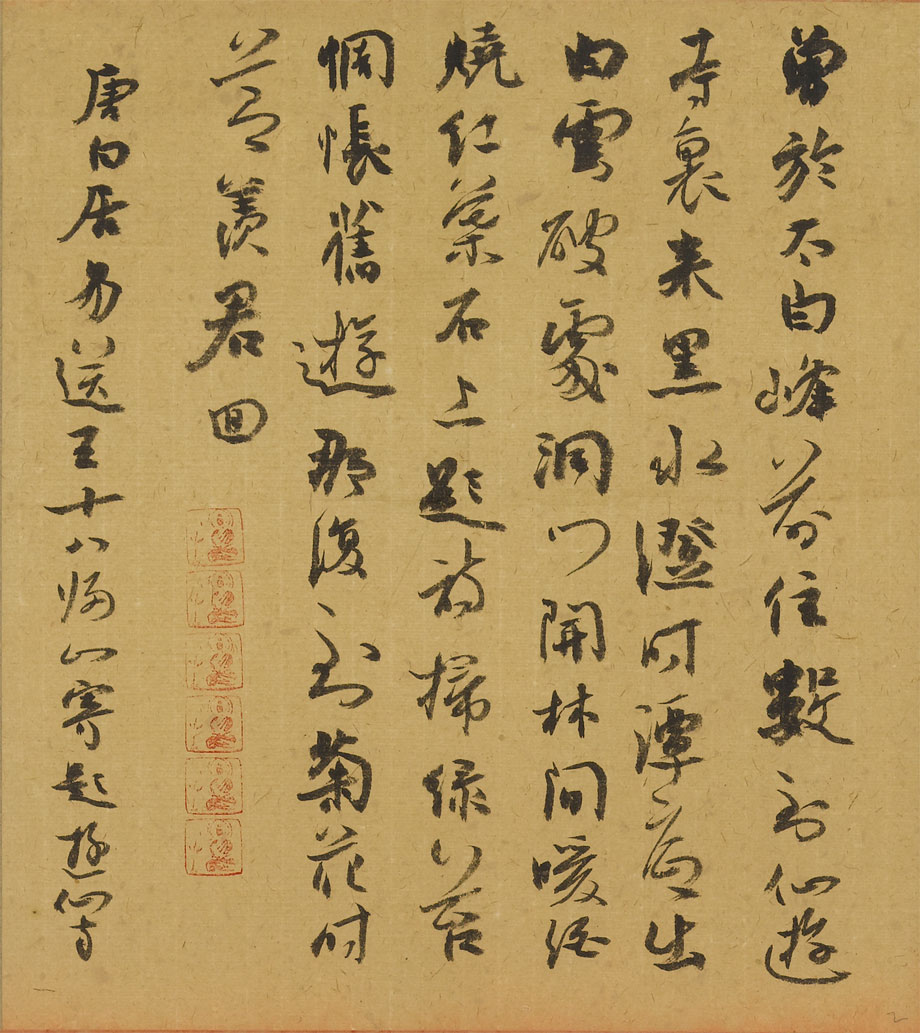 曾於太白峰前住數到仙遊
寺裏来黑水澄时潭底出
白雲破處洞門開林間暖酒
燒紅葉石上題詩掃綠苔
惆悵舊遊那復到菊花时
節羨君回
唐白居易送王十八歸山寄題遊仙寺